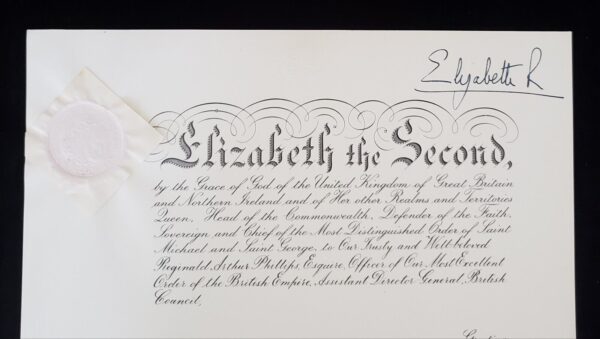 Elizabeth R
Elizabeth the Second,
by the Grace of God of the United Kingdom of Great Britain
and Northern Ireland and of Her other Realms and Territories
Queen, Head of the Commonwealth, Defender of the Faith,
Sovereign and Chief of the Most Distinguished Order of Saint
Michael and Saint George, to Our Trusty and Well-beloved
Reginald Arthur Phillips, Esquire, Officer of Our Most Excellent
Order of the British Empire, Assistant Director General, British
Council,